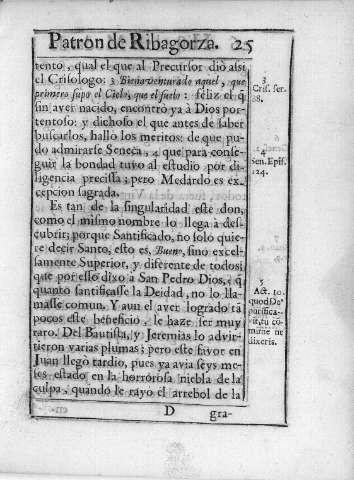 Patron de Ribagorza. 25
tento, qual el que al Precursor diò assi
el Crisologo: 3 Bienaventurado aquel, que
primero supo el Cielo, que el suelo: feliz el q̃
sin aver nacido, encontrò ya à Dios por-
tentoso: y dichoso el que antes de saber
buscarlos, hallò los meritos: de que pu-
do admirarse Seneca, 4 que para conse-
guir la bondad tuvo al estudio por di-
ligencia precissa; pero Medardo es ex-
cepcion sagrada.
Es tan de la singularidad este don,
como el mismo nombre lo llega à des-
cubrir; porque Santificado, no solo quie-
re decir Santo, esto es, Bueno, sino excel-
samente Superior, y diferente de todos;
que por esso dixo a San Pedro Dios, 5 q̃
quanto santificasse la Deidad, no lo lla-
masse comun. Y aun el aver logrado tã
pocos este beneficio, le haze ser muy
raro. Del Bautista, y Jeremias lo advir-
tieron varias plumas; pero este favor en
Juan llegò tardio, pues ya avia seys me-
ses estado en la horrorosa niebla de la
culpa, quando le rayò el arrebol de la
D gra-
3
Cris. ser.
88.
4
Sen. Epist.
124.
5
Act. 10.
quod De9
purifica-
vit, tu cõ-
mune ne
dixeris.